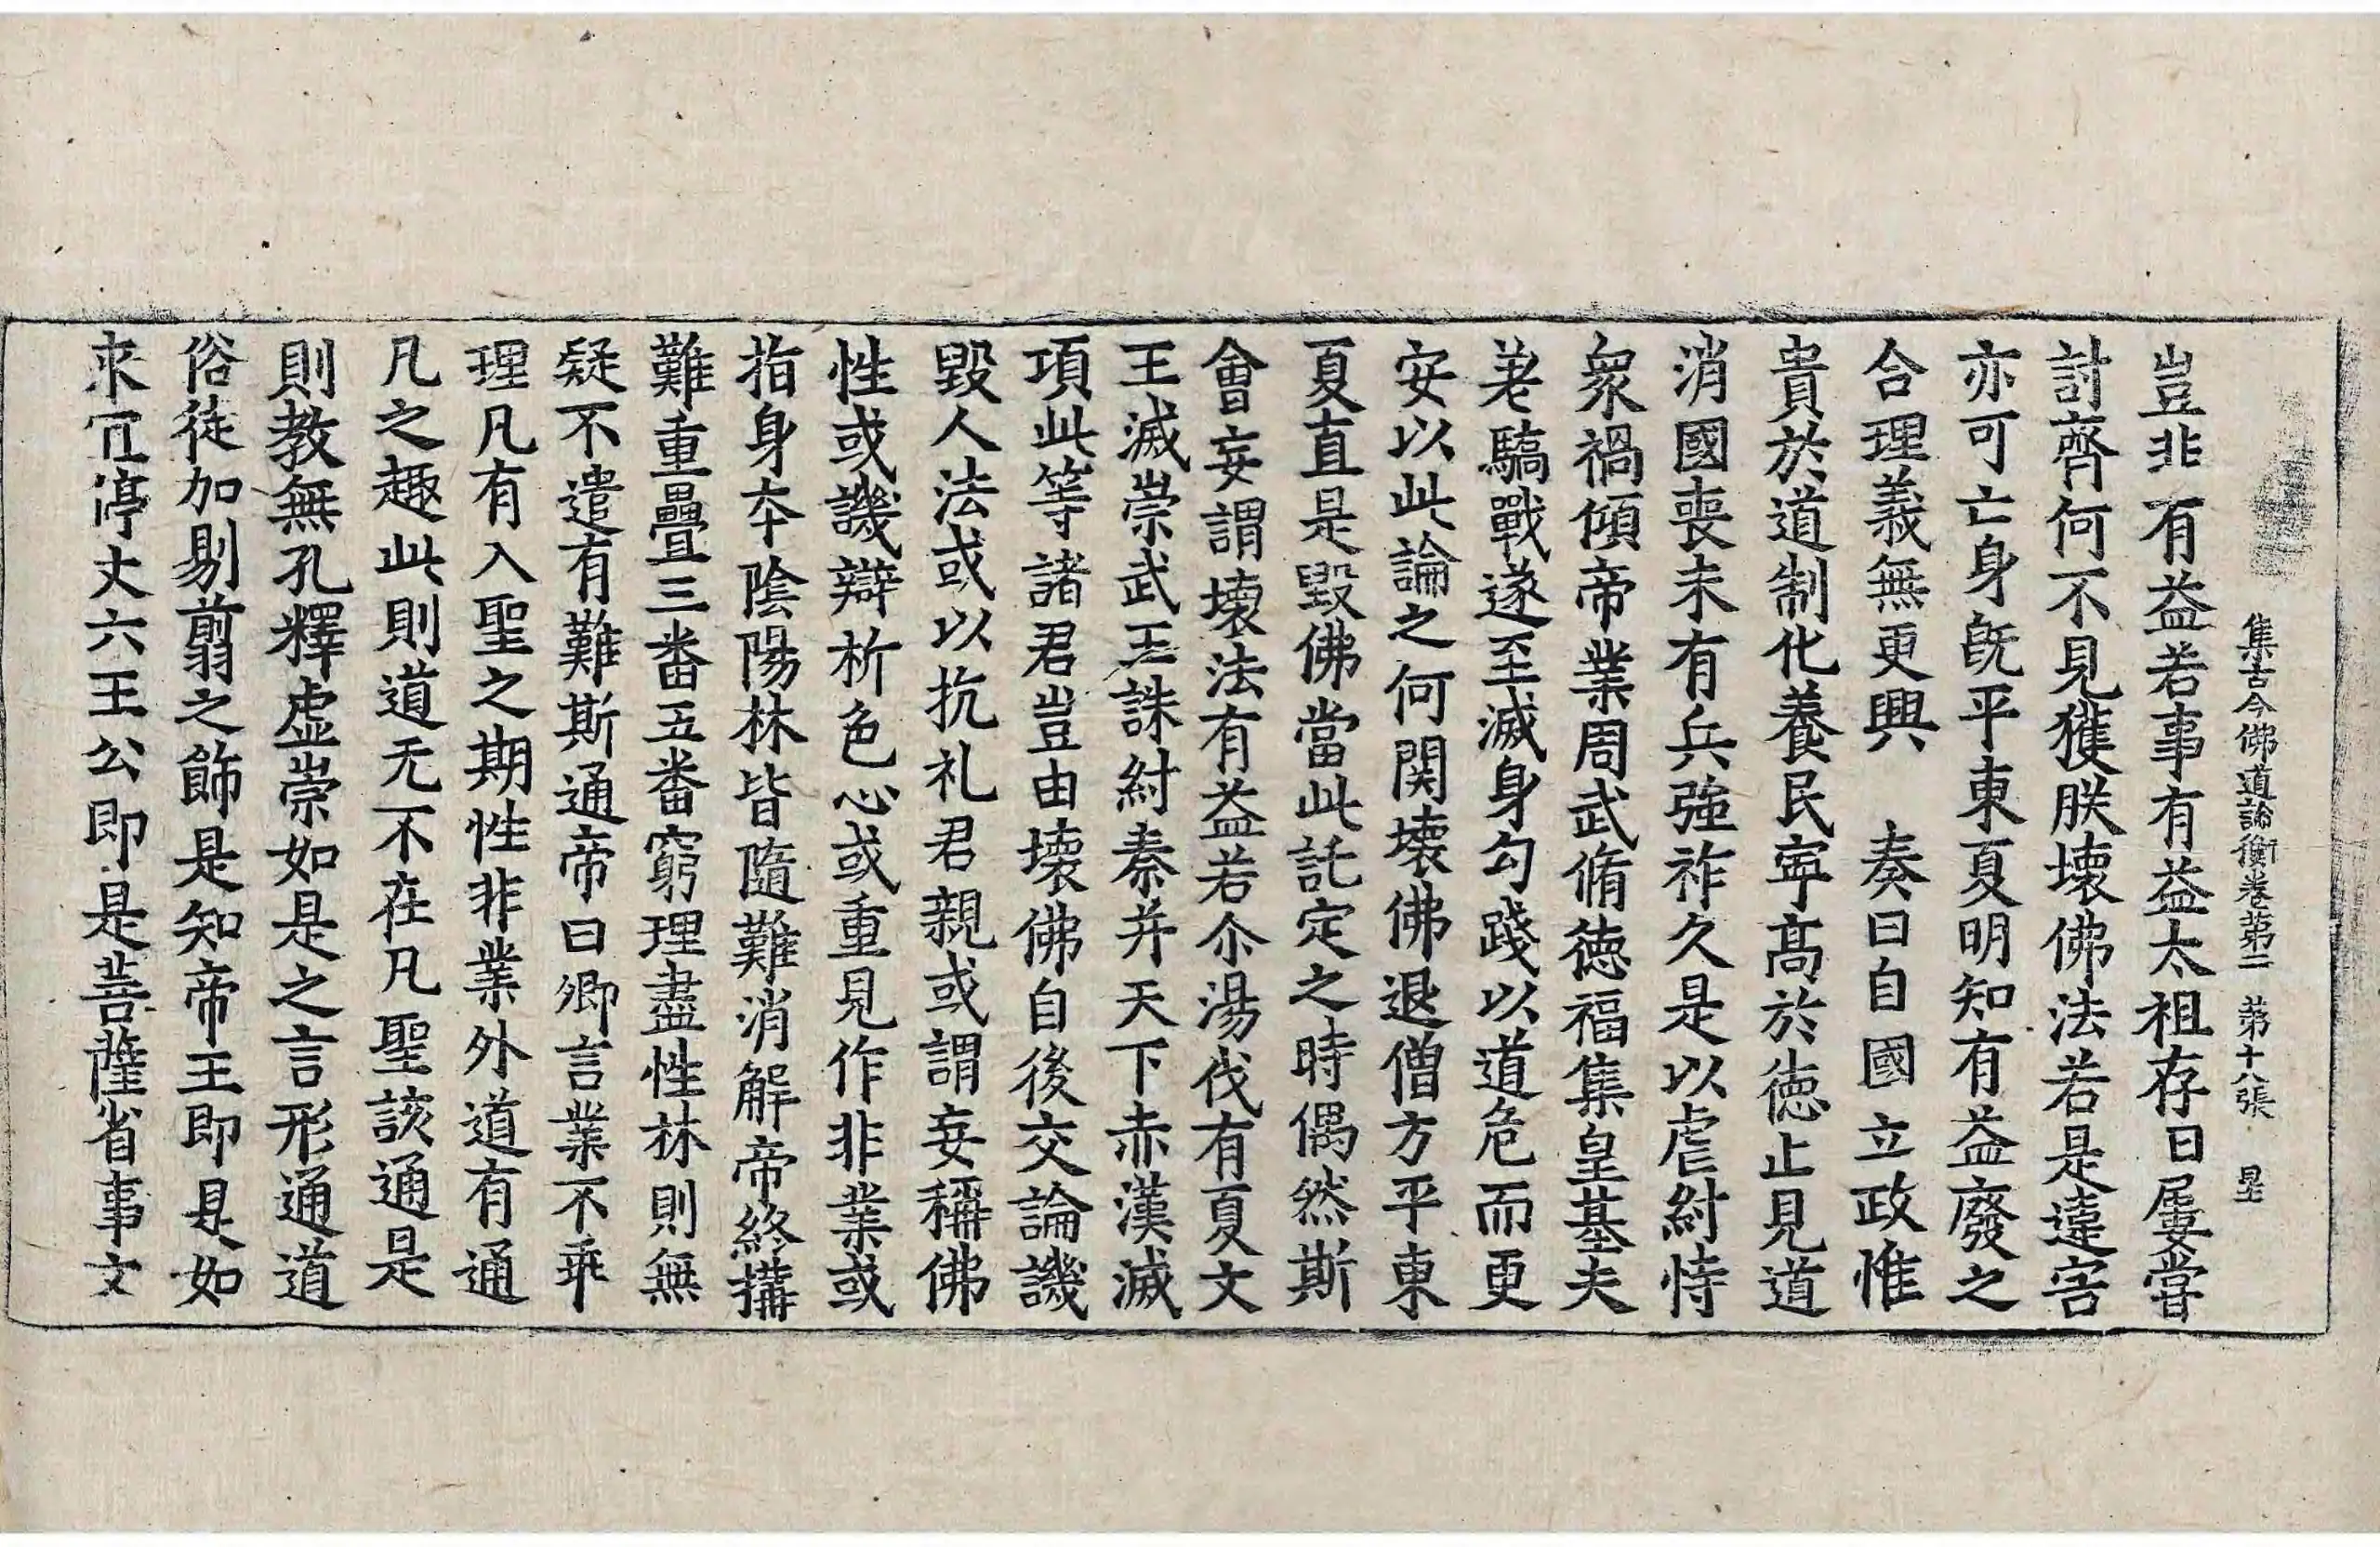 集古今佛道論衡卷第二 第十八張 星
豈非有益若事有益太祖存日屢嘗
討齊何不見獲朕壞佛法若是違害
亦可亡身既平東夏明知有益廢之
合理義無更興 奏曰自國立政惟
貴於道制化養民寧高於徳止見道
消國喪未有兵強祚久是以虐紂恃
衆禍傾帝業周武脩徳福集皇基夫
差驕戰遂至滅身勾踐以道危而更
安以此論之何関壞佛退僧方平東
夏直是毀佛當此託定之時偶然斯
會妄謂壞法有益若尒湯伐有夏文
王滅崇武王誅紂秦并天下赤漢滅
項此等諸君豈由壞佛自後交論譏
毀人法或以抗礼君親或謂妄稱佛
性或譏辯析色心或重見作非業或
指身夲陰陽林皆隨難消解帝終搆
難重疊三番五番窮理盡性林則無
疑不遣有難斯通帝曰卿言業不乖
理凡有入聖之期性非業外道有通
凡之趣此則道无不在凡聖該通是
則教無孔釋虛崇如是之言形通道
俗徒加剔翦之飾是知帝王即是如
来冝停丈六王公即是菩薩省事文